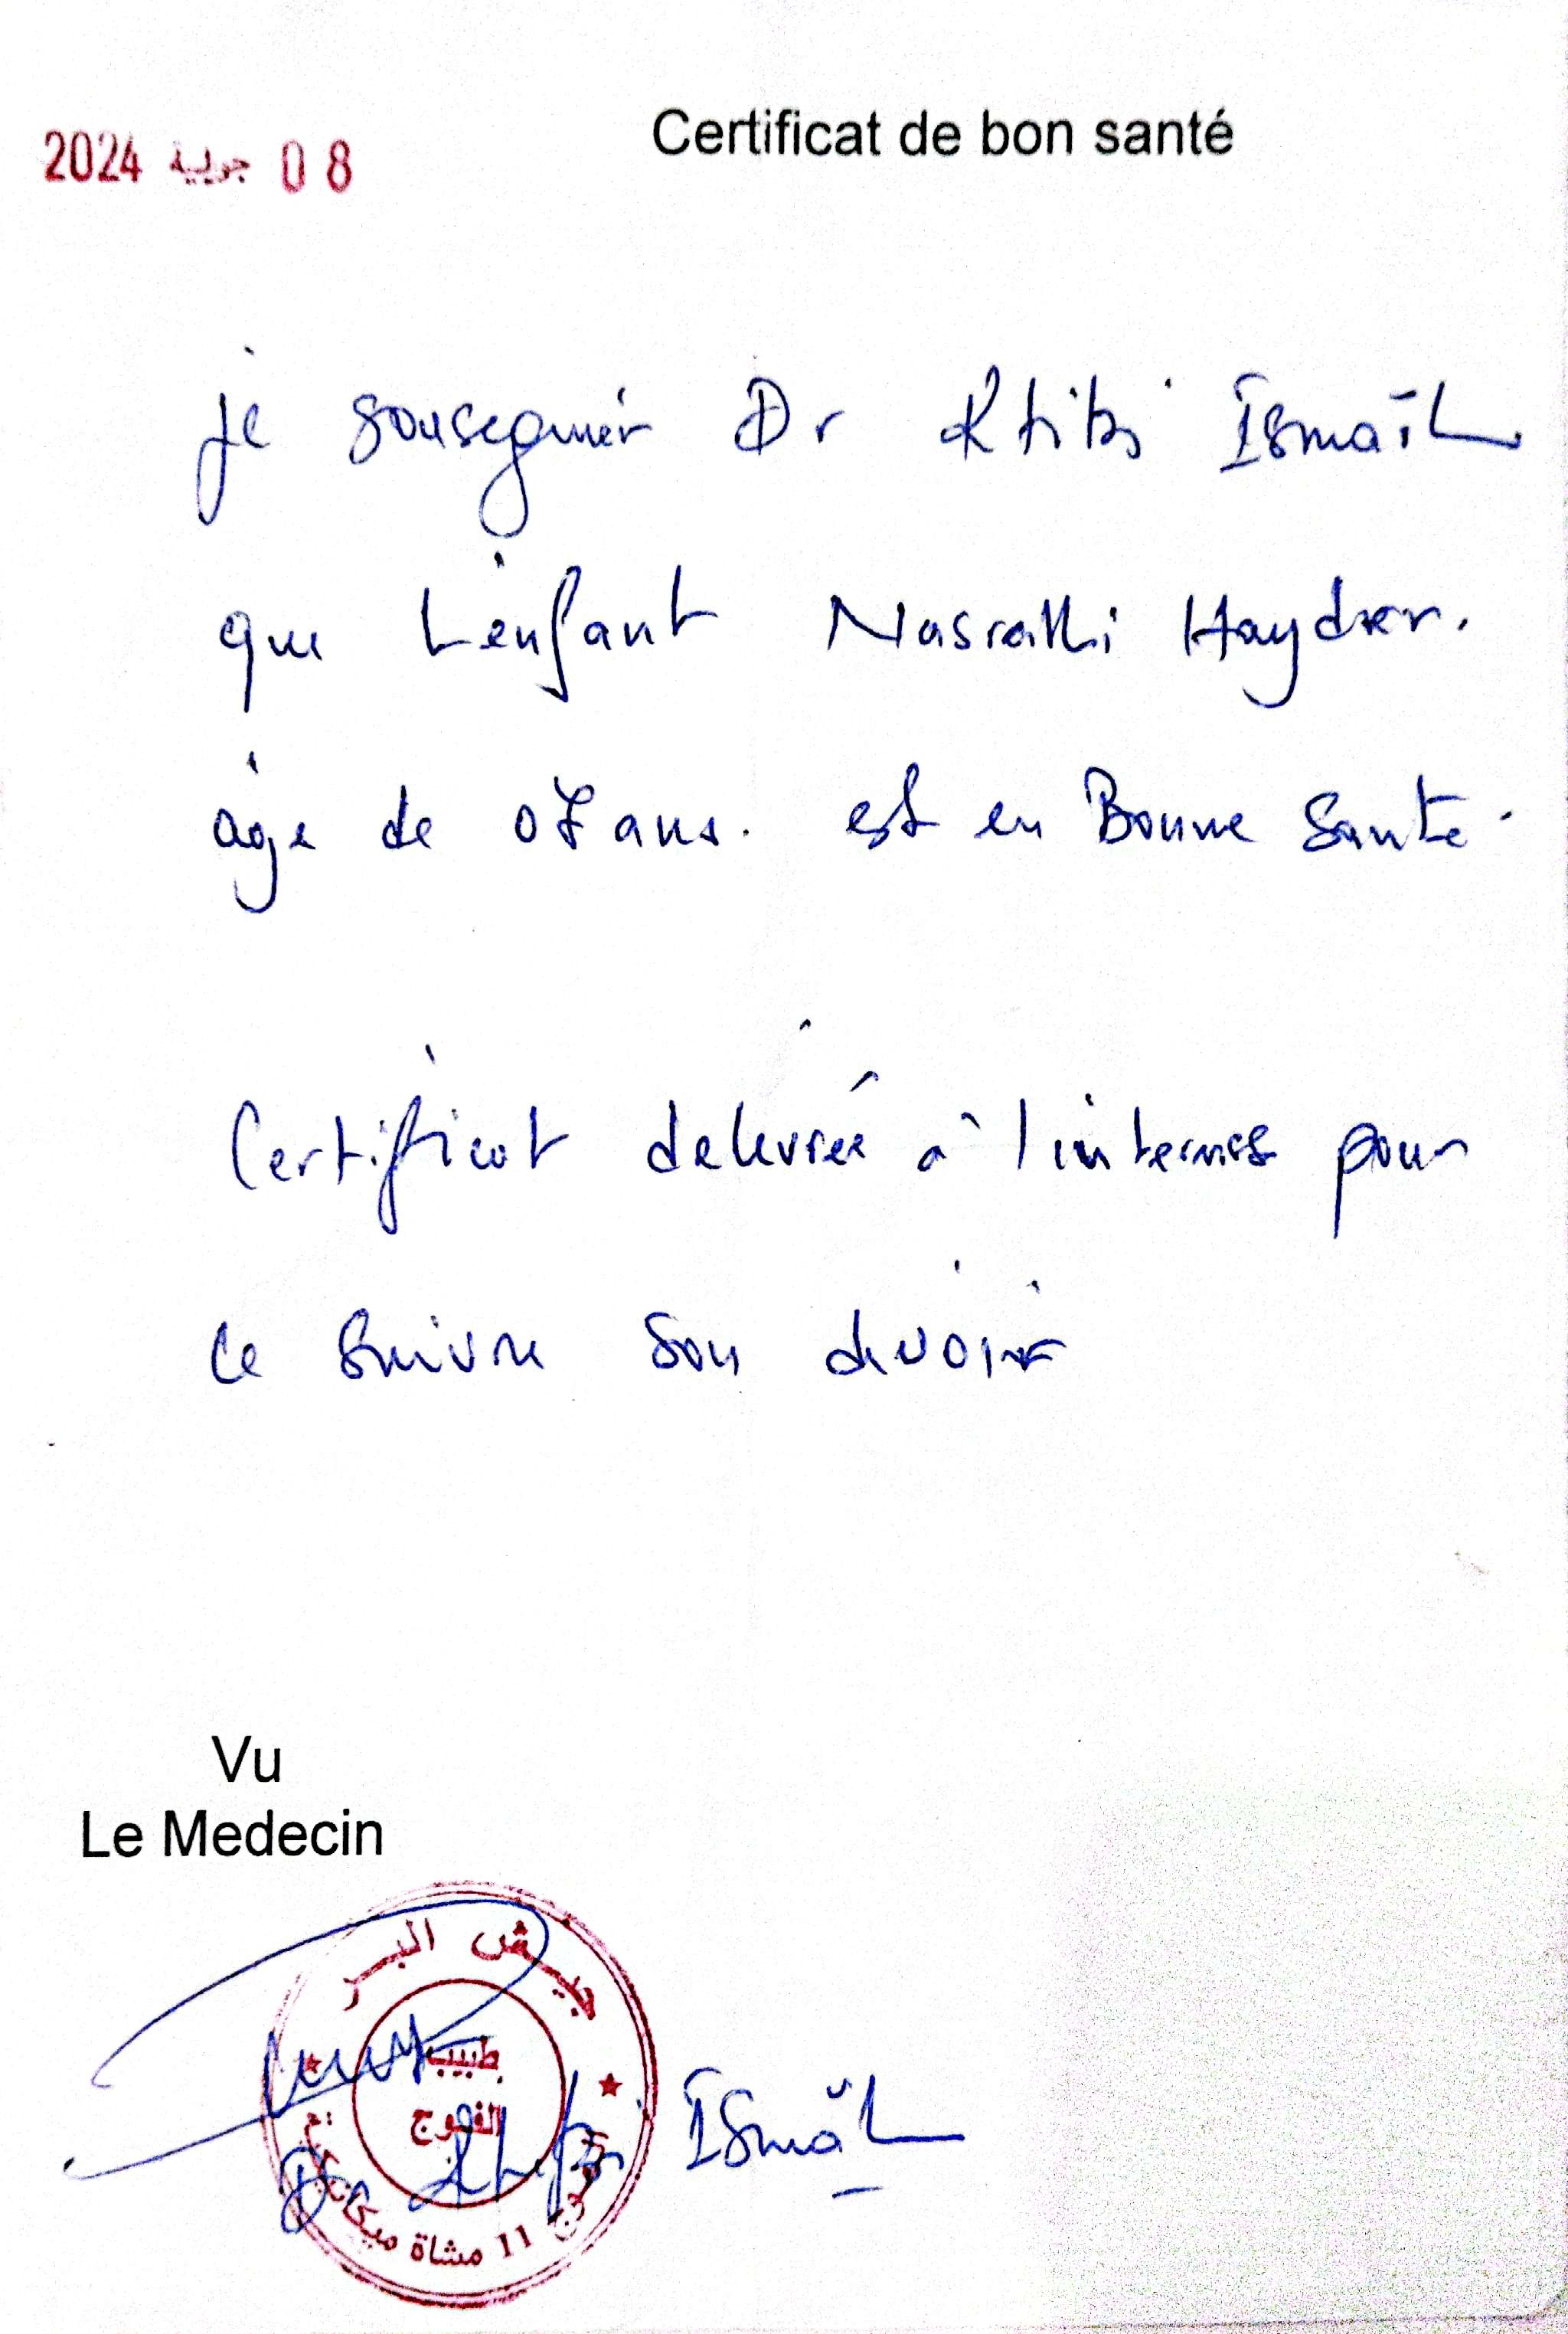 Certificat de bon santé
2024 جويلية 08
je sousegnier Dr Ktiti Ismaïl
que L'enfant Nasralli Hayder.
age de 07 ans. est en Bonne Sante.
Certificat delevrée à l'interrés pour
ce suivre son devoir
Vu
Le Medecin
جيش البر
طبيب
الفوج
الفوج 11 مشاة
Dr Ismaïl